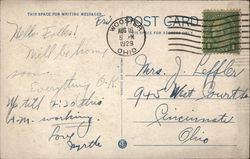 THIS SPACE FOR WRITING MESSAGES
POST CARD
WOOSTER
AUG 16
5 PM
1929
OHIO
Hello Folks!
Will be home
soon.
Everything O.K.
Up till 2:30 this
A.M. working
Love
Myrtle
Mrs. J. Leffler
945 West Court St
Cincinnati
Ohio